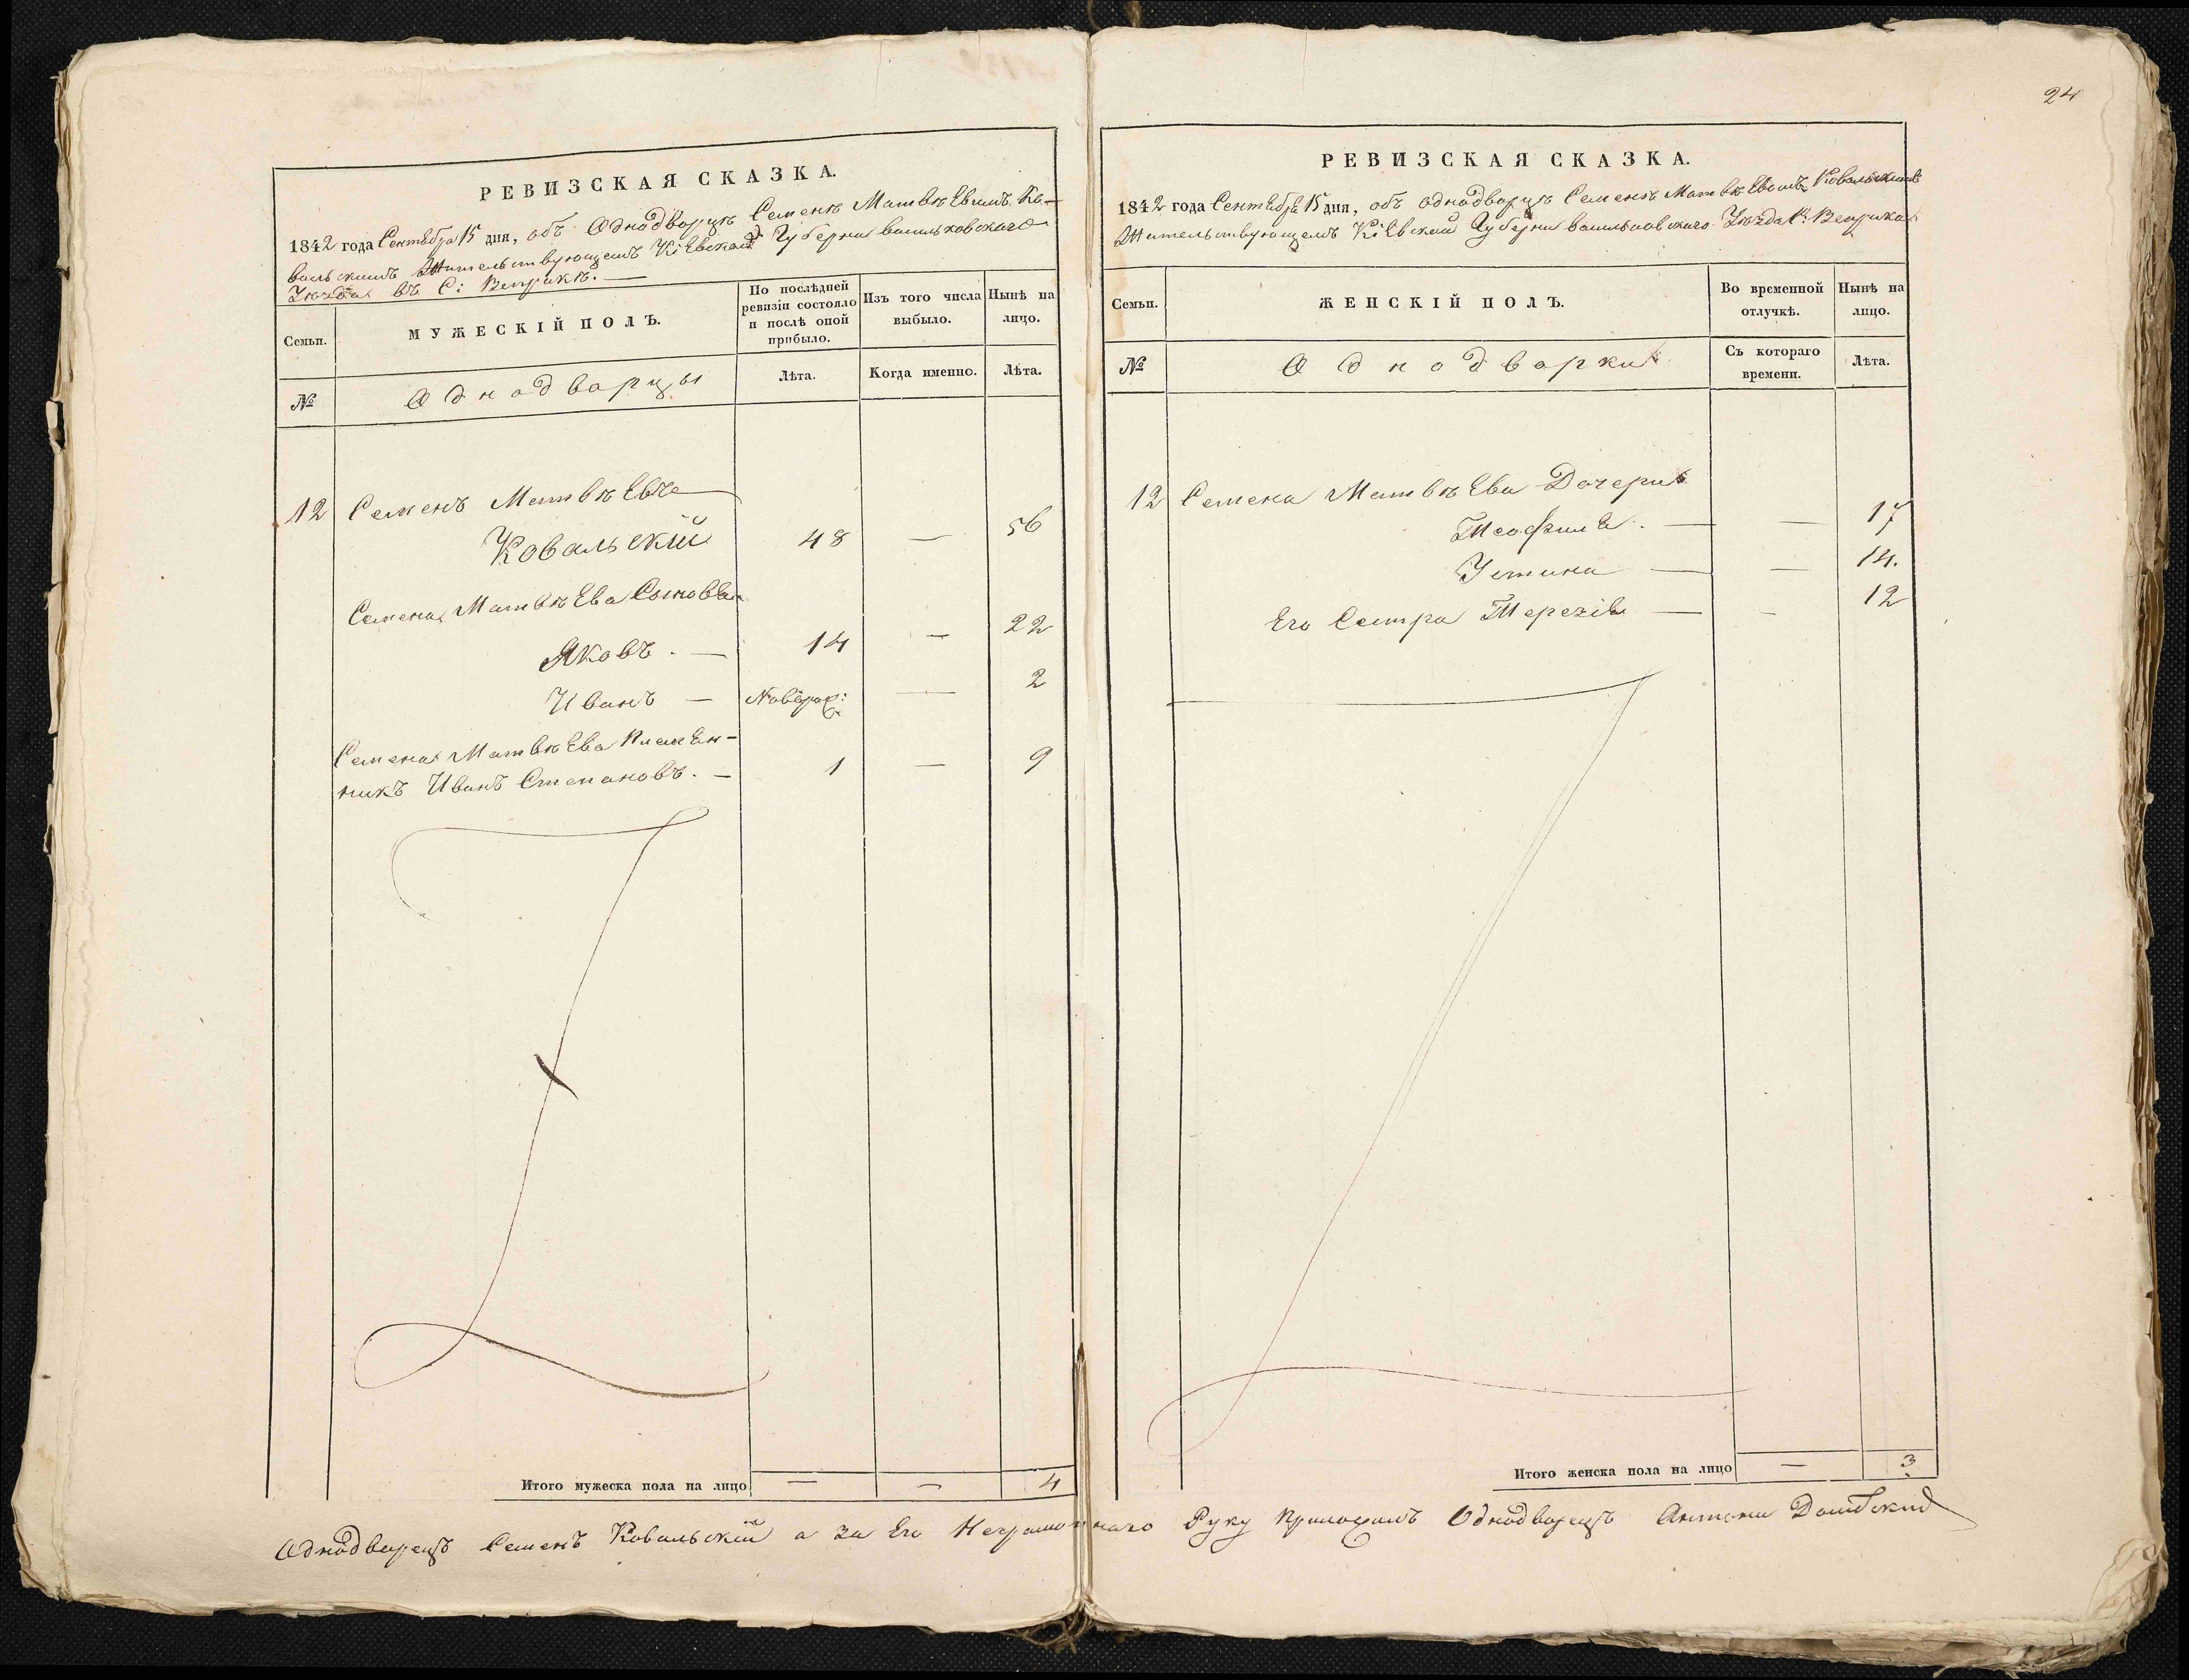 24
РЕВИЗСКАЯ СКАЗКА.
1842 года Сентебря 15 дня, объ Однодворцѣ Семенѣ Матвѣевимъ Ко-
вальскимъ Жительствующемъ Кіевской Губерни васильковского
Уѣзда въ С: Веприкѣ. —
Семьи.
МУЖЕСКІЙ ПОЛЪ.
По послѣдней
ревизіи состояло
и послѣ оной
прибыло.
Изъ того числа
выбыло.
Нынѣ на
лицо.
№
Однодворцы
Лѣта.
Когда именно.
Лѣта.
12 Семенъ Матвѣевъ
Ковальскій 48 — 56
Семена Матвѣева Сыновя
Яковъ. — 14 — 22
Иванъ — Новорож: — 2
Семена Матвѣева Племен-
никъ Иванъ Степановъ. — 1 — 9
Итого мужеска пола на лицо — — 4
РЕВИЗСКАЯ СКАЗКА.
1842 года Сентебря 15 дня, объ однодворцѣ Семенѣ Матвѣевомъ Ковальскимъ
Жительствующемъ Кіевской Губерни васильковского Уѣзда С: Веприка
Семьи.
ЖЕНСКІЙ ПОЛЪ.
Во временной
отлучкѣ.
Нынѣ на
лицо.
№
Однодворки
Съ котораго
времени.
Лѣта.
12 Семена Матвѣева Дочери
Теофиле. — — 17
Устина — — 14.
Его Сестра Терезіе — — 12
Итого женска пола на лицо — 3
Однодворецъ Семенъ Ковальскій а за Его Неграмотнаго Руку Приложилъ Однодворецъ Антони